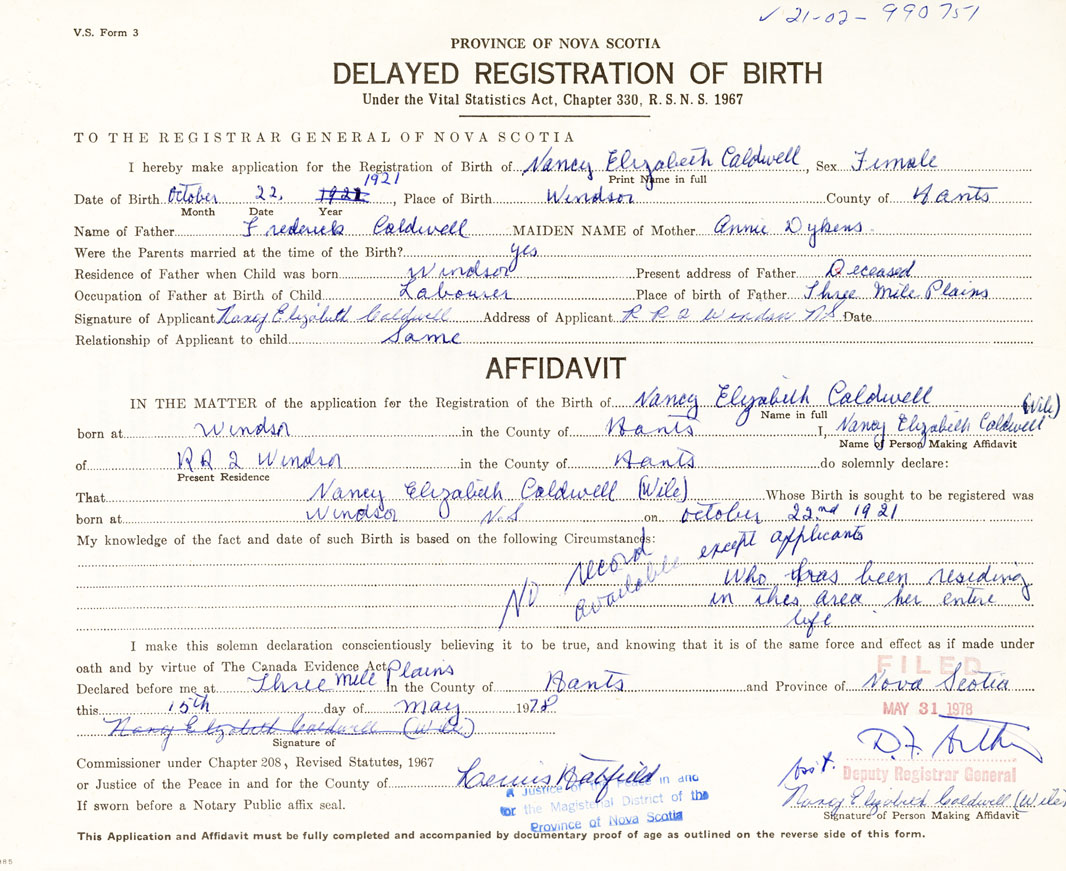 ✓ 21-02-990751
V.S. Form 3
PROVINCE OF NOVA SCOTIA
DELAYED REGISTRATION OF BIRTH
Under the Vital Statistics Act, Chapter 330, R. S. N. S. 1967
TO THE REGISTRAR GENERAL OF NOVA SCOTIA
I hereby make application for the Registration of Birth of Nancy Elizabeth Caldwell, Sex Female
Print Name in full
1921
Date of Birth October 22, Place of Birth Windsor County of Hants
Month Date Year
Name of Father Frederick Caldwell MAIDEN NAME of Mother Annie Dykens
Were the Parents married at the time of the Birth? yes
Residence of Father when Child was born Windsor Present address of Father Deceased
Occupation of Father at Birth of Child Labourer Place of birth of Father Three Mile Plains
Signature of Applicant Nancy Elizabeth Caldwell Address of Applicant R R 2 Windsor N.S. Date
Relationship of Applicant to child Same
AFFIDAVIT
IN THE MATTER of the application for the Registration of the Birth of Nancy Elizabeth Caldwell
Name in full
(Wile)
born at Windsor in the County of Hants I, Nancy Elizabeth Caldwell
Name of Person Making Affidavit
of RR 2 Windsor in the County of Hants do solemnly declare:
Present Residence
That Nancy Elizabeth Caldwell (Wile) Whose Birth is sought to be registered was
born at Windsor N.S on October 22nd 1921
My knowledge of the fact and date of such Birth is based on the following Circumstances:
No record available except applicants
who has been residing
in this area her entire
life
I make this solemn declaration conscientiously believing it to be true, and knowing that it is of the same force and effect as if made under
oath and by virtue of The Canada Evidence Act.
FILED
Declared before me at Three Mile Plains in the County of Hants and Province of Nova Scotia
MAY 31 1978
this 15th day of May 1978
Nancy Elizabeth Caldwell (Wile)
Signature of
Commissioner under Chapter 208, Revised Statutes, 1967
Asst. Deputy Registrar General
or Justice of the Peace in and for the County of Hatfield
a Justice of the Peace in and
for the Magisterial District of the
Province of Nova Scotia
If sworn before a Notary Public affix seal.
Nancy Elizabeth Caldwell (Wile)
Signature of Person Making Affidavit
This Application and Affidavit must be fully completed and accompanied by documentary proof of age as outlined on the reverse side of this form.